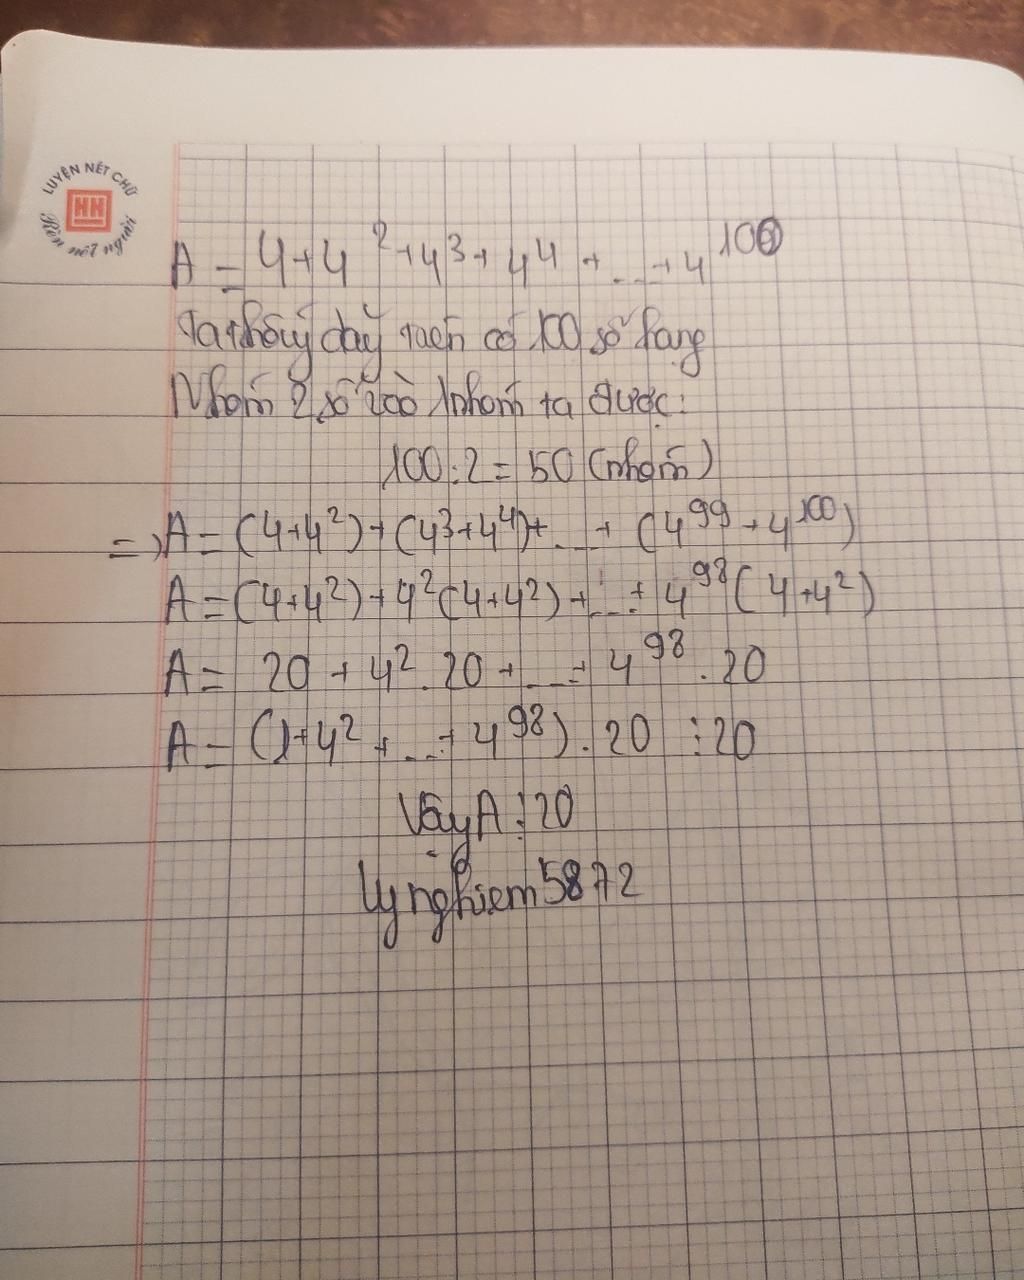 LUYỆN NÉT CHỮ
HN
Rèn nết người
A = 4+4²+4³+4⁴+...+4¹⁰⁰
Ta thấy dãy trên có 100 số hạng
Nhóm 2 số vào 1 nhóm ta được:
100:2=50 (nhóm)
=> A = (4+4²)+(4³+4⁴)+...+(4⁹⁹+4¹⁰⁰)
A = (4+4²)+4²(4+4²)+...+4⁹⁸(4+4²)
A = 20+4².20+...+4⁹⁸.20
A = (1+4²+...+4⁹⁸).20 ⋮20
Vậy A⋮20
lynghiem5872